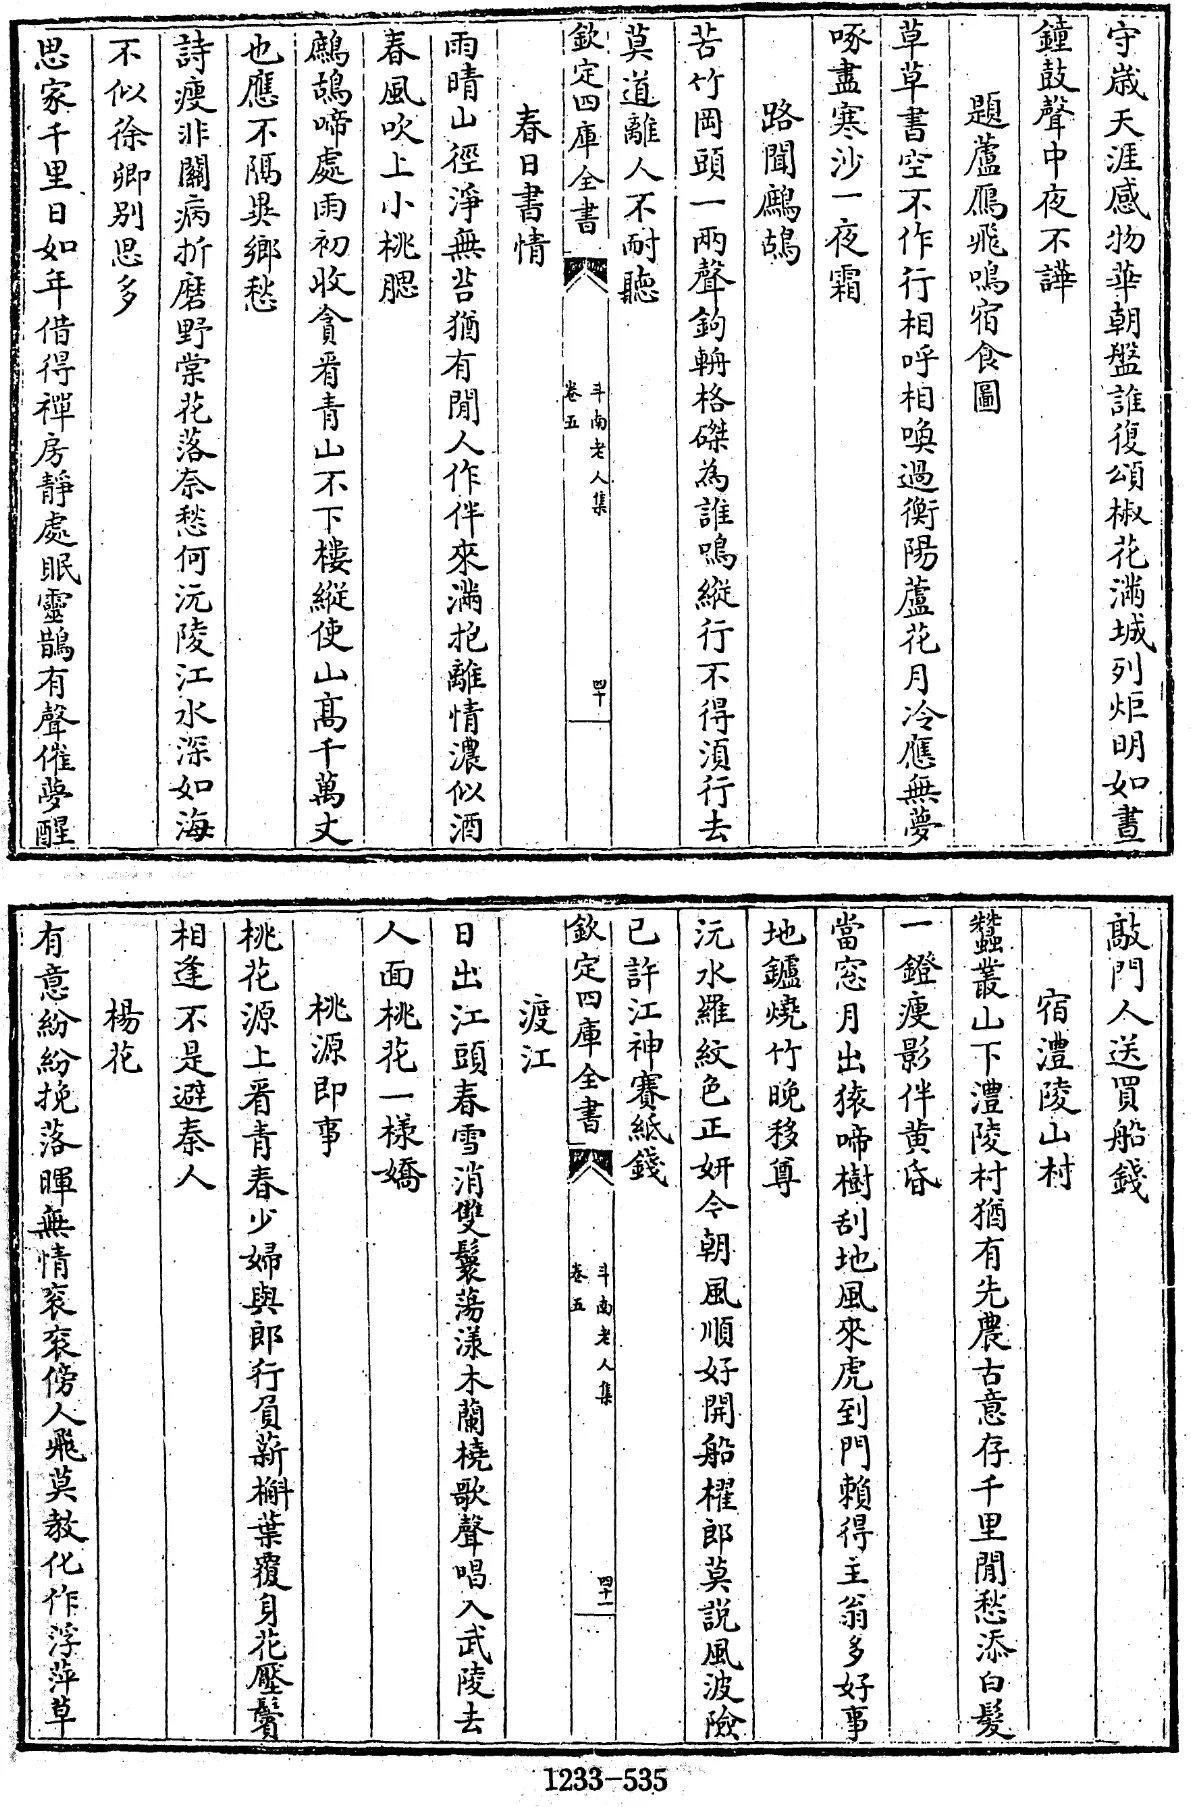 守嵗天涯感物華朝盤誰復頌椒花滿城列炬明如晝
鐘鼓聲中夜不譁
題蘆鴈飛鳴宿食圖
草草書空不作行相呼相喚過衡陽蘆花月冷應無夢
啄盡寒沙一夜霜
路聞鷓鴣
苦竹岡頭一兩聲鉤輈格磔為誰鳴縱行不得湏行去
莫道離人不耐聽
欽定四庫全書
斗南老人集
卷五
四十
春日書情
雨晴山徑淨無苔猶有閒人作伴來滿抱離情濃似酒
春風吹上小桃腮
鷓鴣啼處雨初收貪㸔青山不下樓縱使山髙千萬丈
也應不隔異鄉愁
詩瘦非關病折磨野棠花落奈愁何沅陵江水深如海
不似徐卿别思多
思家千里日如年借得禪房靜處眠靈鵲有聲催夢醒
敲門人送買船錢
宿澧陵山村
蠶叢山下澧陵村猶有先農古意存千里閒愁添白髪
一鐙瘦影伴黄昏
當窓月出猿啼樹刮地風來虎到門頼得主翁多好事
地鑪燒竹晚移尊
沅水羅紋色正妍今朝風順好開船櫂郎莫說風波險
已許江神賽紙錢
欽定四庫全書
斗南老人集
卷五
四十一
渡江
日出江頭春雪消雙鬟蕩漾木蘭橈歌聲唱入武陵去
人面桃花一様嬌
桃源即事
桃花源上㸔青春少婦與郎行負薪槲葉覆身花壓鬢
相逢不是避秦人
楊花
有意紛紛挽落暉無情衮衮傍人飛莫教化作浮萍草
1233-535